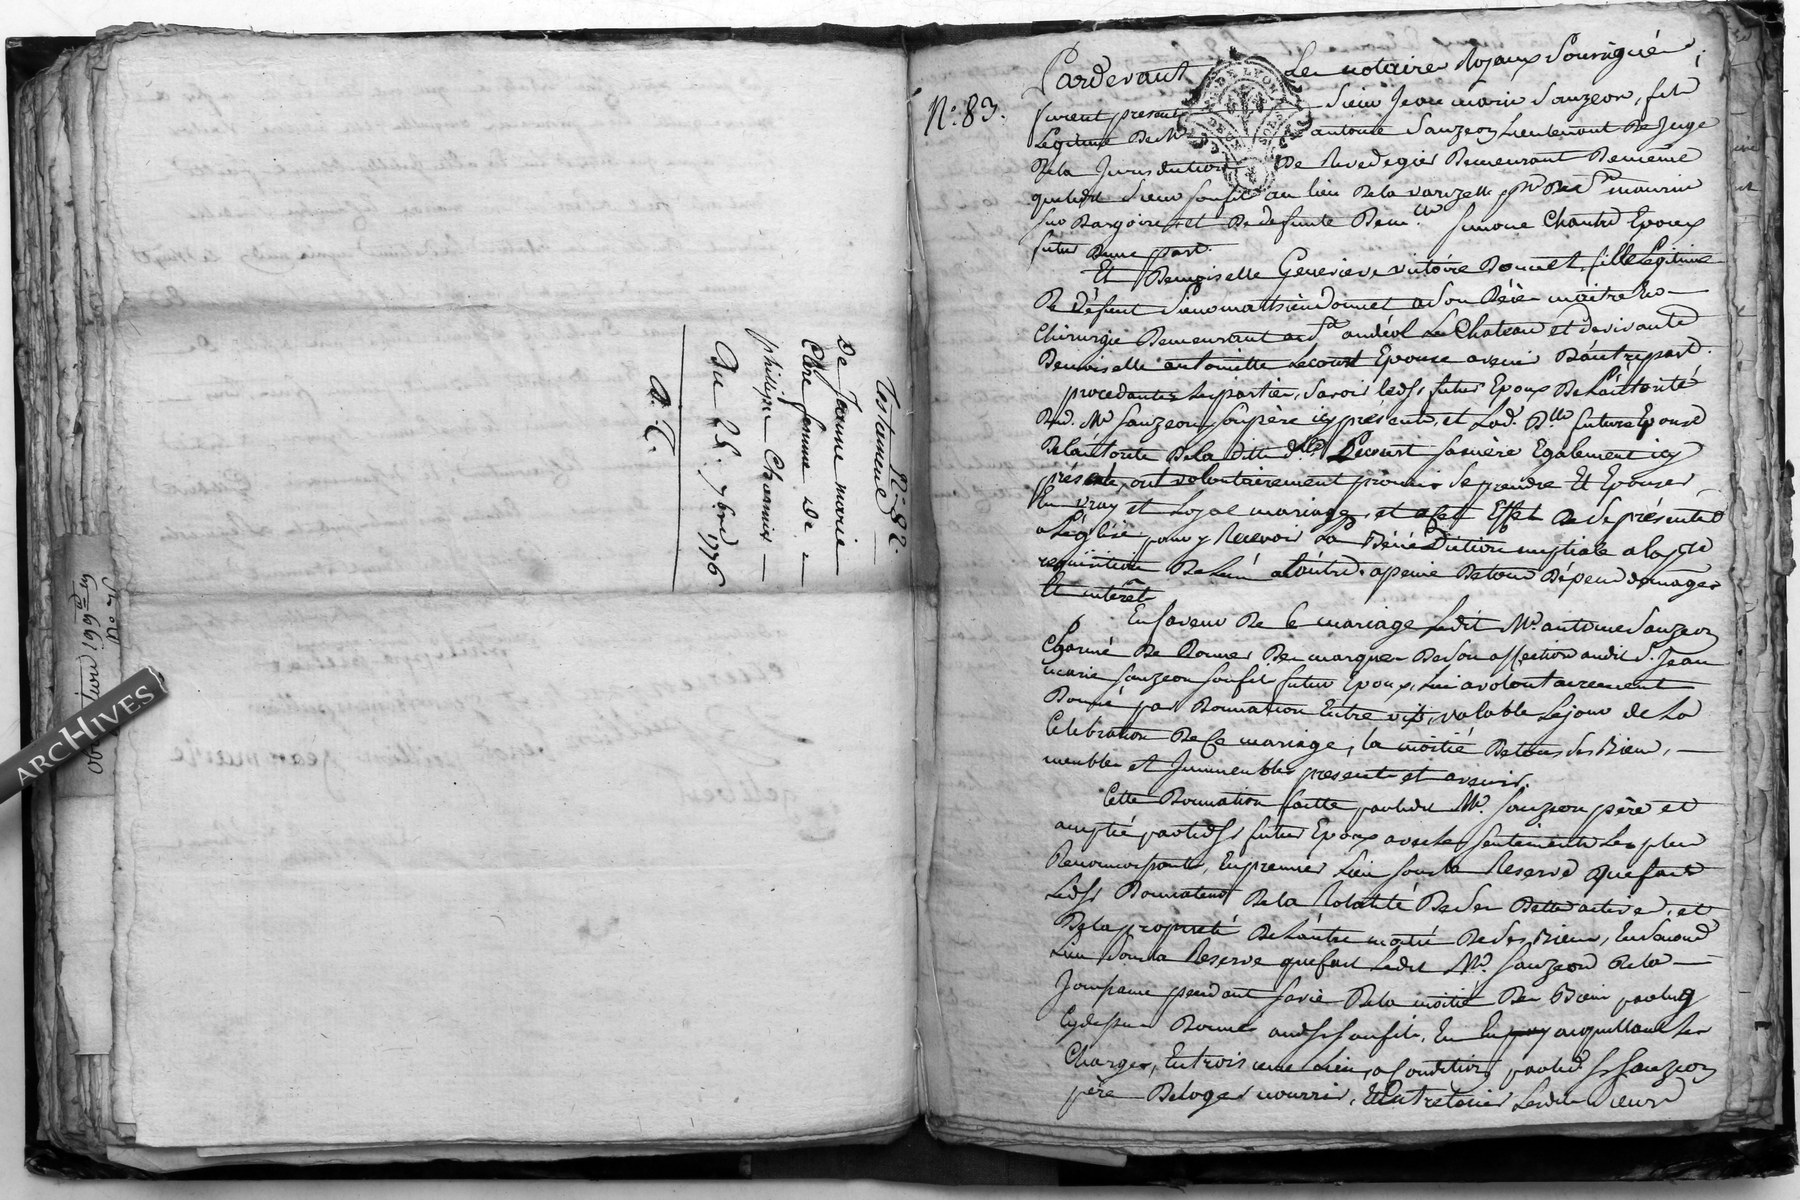 N.° 82.
Testament
De Jeanne marie
Clere femme de
philippe Charmier
Du 25. 7bre 1776
N.° 83.
ARCHIVES
Pardevant Le notaire Royaux Soussigné
furent present Sieur Jean marie Sauzeon, fils
Légitime De Mr antoine Sauzeon Lieutenant De Juge
De la Jurisdiction De Rivedegier Demeurant De même
que ledit Sieur son fils au lieu De la varizelle psse De St maurice
sur Dargoire, et De defunte Demlle Simone Chantre Epoux
futur D'une part.
Et Demoiselle Genevieve victoire Donnet, fille Legitime
De Défunt Sieur mathieu Donnet a Son Décès maitre En
Chirurgie Demeurant a St andéol Le Chateau et De vivante
Demoiselle antoinette Lecourt Epouse avenir D'autre part.
procedantes Les parties, Savoir led. Sr futur Epoux De L'autorité
Dud. Mr Sauzeon son père icy présent, et Lad. Dlle future Epouse
De l'autorité De la ditte dlle Lecourt sa mère Egalement icy
présente, ont volontairement promis Se prendre Et Epouser
En vray et Loyal mariage, et a cet Effet De se présenter
a L'église pour y Recevoir La Bénédiction nuptiale a la prre
requisition De L'un a L'autre, a peine De tous Dépens domages
Et intérêts
En faveur De Ce mariage Ledit Mr antoine Sauzeon
Charmé De Donner Des marques De Son affection audit Sr Jean
marie Sauzeon son fils futur Epoux, Lui a volontairement
Donné par Donnation Entre vifs, valable Le jour de La
Célébration De Ce mariage, la moitié De tous Ses Biens,
meubles et Immeubles présents et avenir.
Cette Donnation faitte par ledit Mr Sauzeon père et
acceptée par led. Sr futur Epoux avec les Sentiments Les plus
Reconnoissants, En premier Lieu sous la Reserve que fait
Led. Sr Donnateur De la Totalité De Ses Dettes actives, et
De la proprieté De L'autre moitié De Ses Biens, En Second
Lieu Sous la Reserve que fait Ledit Mr Sauzeon De la
Jouissance pendant Sa vie De la moitié Des Biens par lui
Cy dessus Donnés aud. Sr son fils, En acquittant Les
Charges, En troisieme Lieu, a Condition par led. Sr Sauzeon
père De loger nourrir, Et Entretenir Lesdits Sieurs